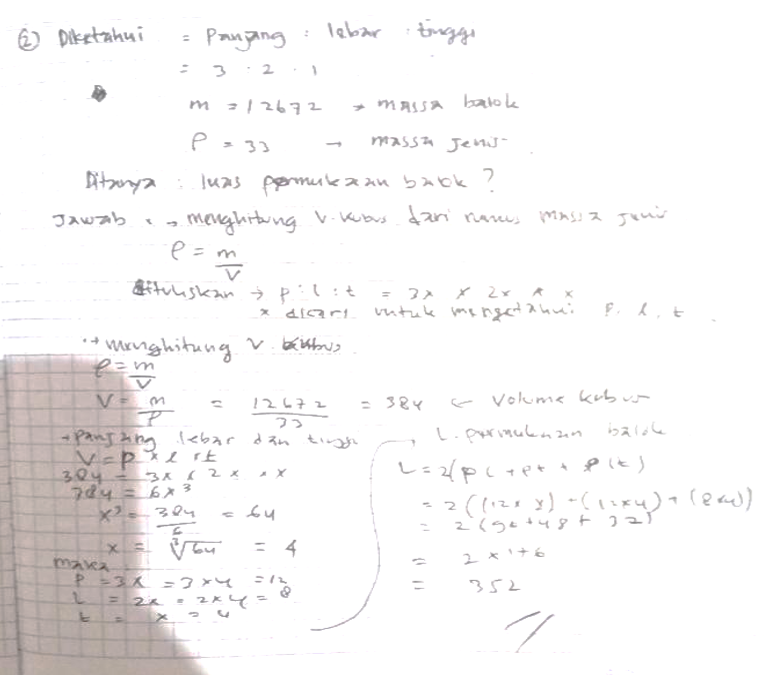 ② Diketahui = Panjang : lebar : tinggi
= 3 . 2 . 1
m = 12672 → massa balok
ρ = 33 → massa jenis
Ditanya : luas permukaan balok ?
Jawab : → menghitung V. kubus dari rumus massa jenis
ρ = m/V
dituliskan → p : l : t = 3x × 2x × x
x dicari untuk mengetahui p, l, t.
→ menghitung V kubus
ρ = m/V
V = m/ρ = 12672/33 = 384 ← Volume kubus
→ panjang lebar dan tinggi
V = p × l × t
384 = 3x × 2x × x
384 = 6x³
x³ = 384/6 = 64
x = ³√64 = 4
maka
P = 3x = 3×4 = 12
L = 2x = 2×4 = 8
t = x = 4
→ L. permukaan balok
L = 2(pl + pt + lt)
= 2((12×8) + (12×4) + (8×4))
= 2(96+48+32)
= 2×176
= 352